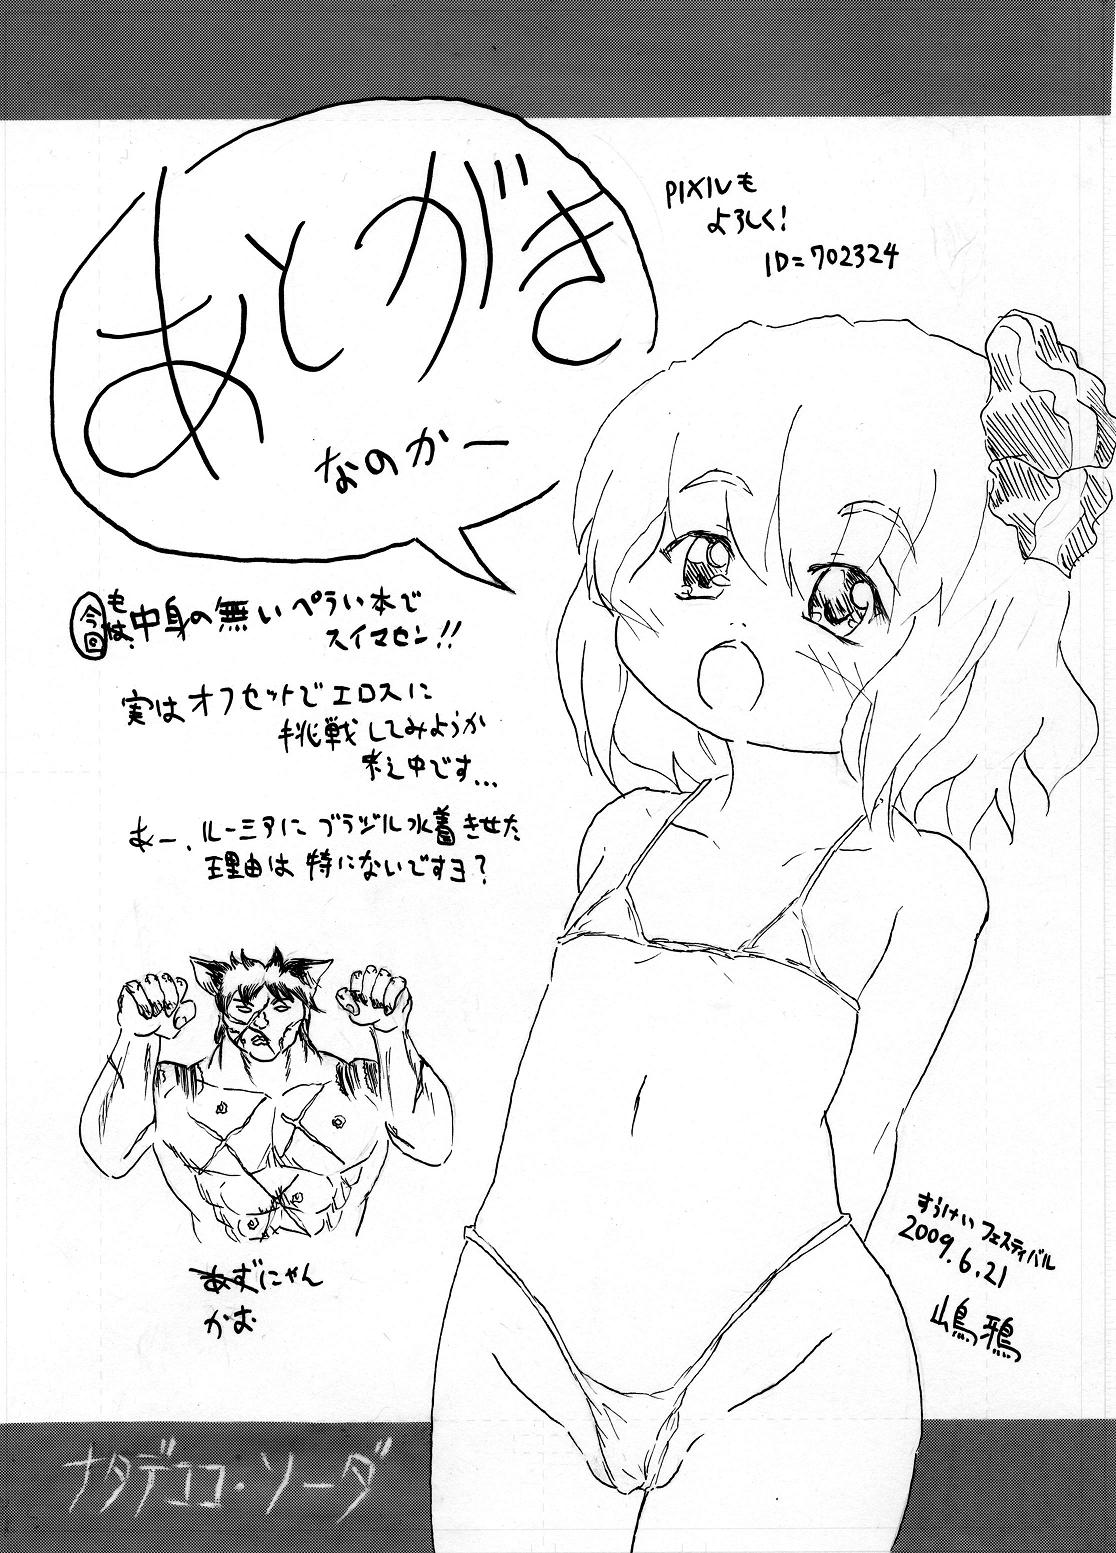 あとがき
なのかー
PIXIVも
よろしく!
ID=702324
今回もは、中身の無いペラい本で
スイマセン!!
実はオフセットでエロスに
挑戦してみようか
考え中です...
あー、ルーミアにブラジル水着きせた
理由は特にないですヨ?
あずにゃん
かむ
すうけいフェスティバル
2009.6.21
嶋鴉
ナタデココ・ソーダ